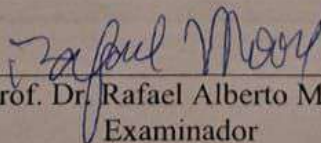 Rafael Moor
Prof. Dr. Rafael Alberto M
Examinador